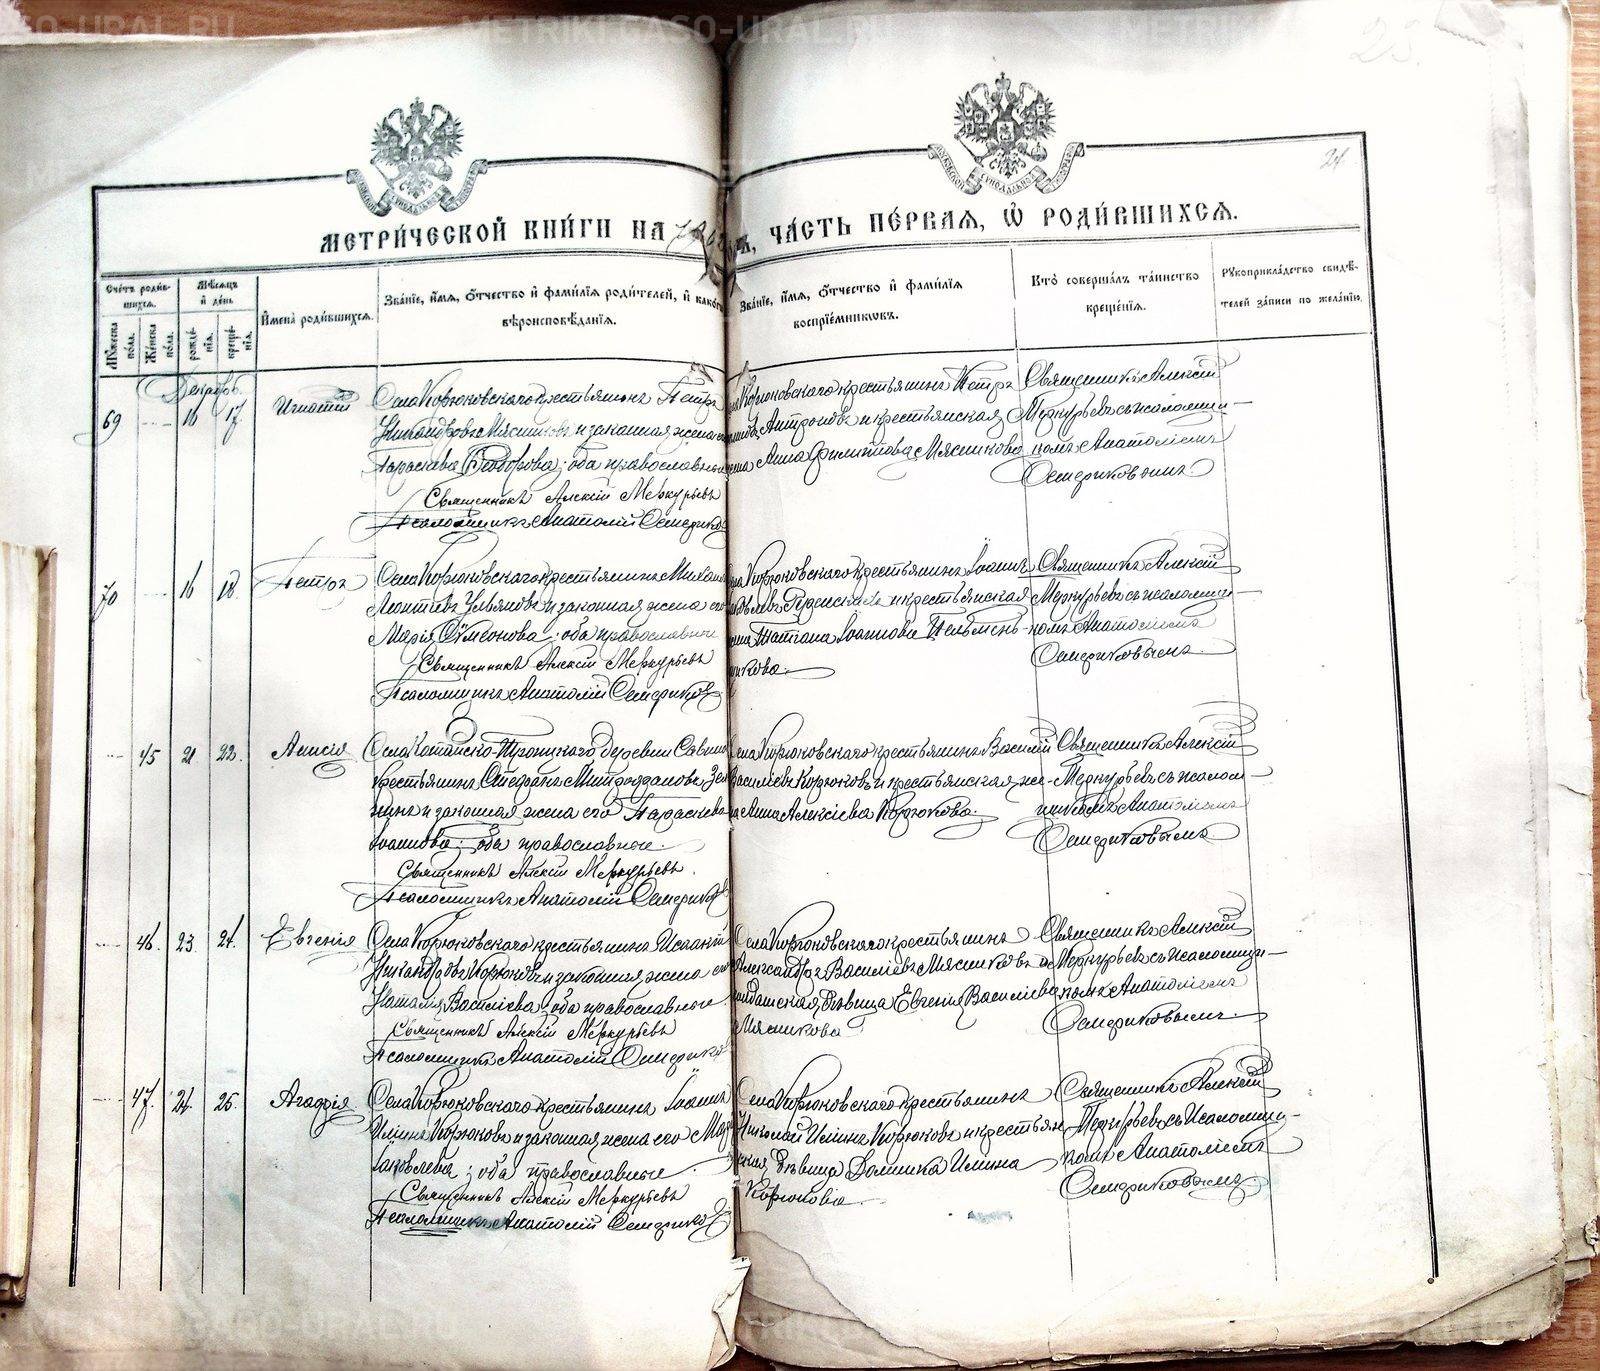 METRIKI.GASO-URAL.RU
23.
24.
МЕТРИ́ЧЕСКОЙ КНИ́ГИ НА
ЧА́СТЬ ПЕ́РВАЯ, Ѡ҆ РОДИ́ВШИХСѦ.
Счётъ роди́в-
шихсѧ.
Мѣ́сѧцъ
и҆ де́нь
Мꙋ́жеска по́ла.
Же́нска по́ла.
рожде́-
нїѧ.
креще́-
нїѧ.
И҆мена̀ роди́вшихсѧ.
Зва́нїе, и҆́мѧ, ѻ҆́тчество и҆ фами́лїѧ роди́телей, и҆ како́гѡ
вѣроисповѣ́данїѧ.
Зва́нїе, и҆́мѧ, ѻ҆́тчество и҆ фами́лїѧ
воспрїе́мникѡвъ.
Кто̀ соверша́лъ та́инство
креще́нїѧ.
Рꙋкоприкла́дство свидѣ́-
телей за́писи по жела́нїю.
Декабрь.
69 16 17. Игнатій
Села Корюковскаго крестьянинъ Петръ
Никандровъ Мясниковъ и законная жена его
Параскева Ѳеодорова; оба православные
Священникъ Алексій Меркурьевъ
Псаломщикъ Анатолій Семериков
Села Корюковскаго крестьянинъ Петръ
Антроповъ и крестьянская
жена Анна Филиппова Мясникова
Священникъ Алексій
Меркурьевъ съ псаломщи-
комъ Анатоліемъ
Семериковымъ
70 16 18. Петръ
Села Корюковскаго крестьянинъ Михаилъ
Леонтіевъ Ульяновъ и законная жена его
Марія Сѵмеонова; оба православные
Священникъ Алексій Меркурьевъ
Псаломщикъ Анатолій Семериков
Села Корюковскаго крестьянинъ Іоаннъ
и крестьянская
жена Татіана Іоаннова Пельмен-
никова.
Священникъ Алексій
Меркурьевъ съ псаломщи-
комъ Анатоліемъ
Семериковымъ.
45 21 22. Анисія
Села деревни
крестьянинъ Стефанъ Митрофановъ
и законная жена его Параскева
Іоаннова; оба православные.
Священникъ Алексій Меркурьевъ.
Псаломщикъ Анатолій Семериков
Села Корюковскаго крестьянинъ Василій
Васильевъ Корюковъ и крестьянская же-
на Анна Алексіева Корюкова.
Священникъ Алексій
Меркурьевъ съ псалом-
щикомъ Анатоліемъ
Семериковымъ
46. 23 24. Евгенія
Села Корюковскаго крестьянинъ Исаакій
Никандровъ Корюковъ и законная жена его
Наталія Василіева; оба православные
Священникъ Алексій Меркурьевъ
Псаломщикъ Анатолій Семериков
Села Корюковскаго крестьянинъ
Александръ Василіевъ Мясниковъ и
дѣвица Евгенія Василіева
Мясникова
Священникъ Алексій
Меркурьевъ съ псаломщи-
комъ Анатоліемъ
Семериковымъ.
47. 24. 25. Агафія
Села Корюковскаго крестьянинъ Іоаннъ
Илiинъ Корюковъ и законная жена его
Іаковлева; оба православные
Священникъ Алексій Меркурьевъ
Псаломщикъ Анатолій Семериков
Села Корюковскаго крестьянинъ
Николай Илiинъ Корюковъ и крестьян
ская дѣвица Домника Илiина
Корюкова.
Священникъ Алексій
Меркурьевъ съ псаломщи-
комъ Анатоліемъ
Семериковымъ.